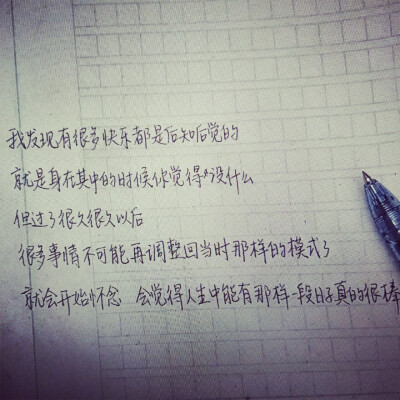 我发现有很多快乐都是后知后觉的
就是身在其中的时候你觉得没什么
但过了很久很久以后
很多事情不可能再调整回当时那样的模式了
就会开始怀念 会觉得人生中能有那样一段日子真的很棒